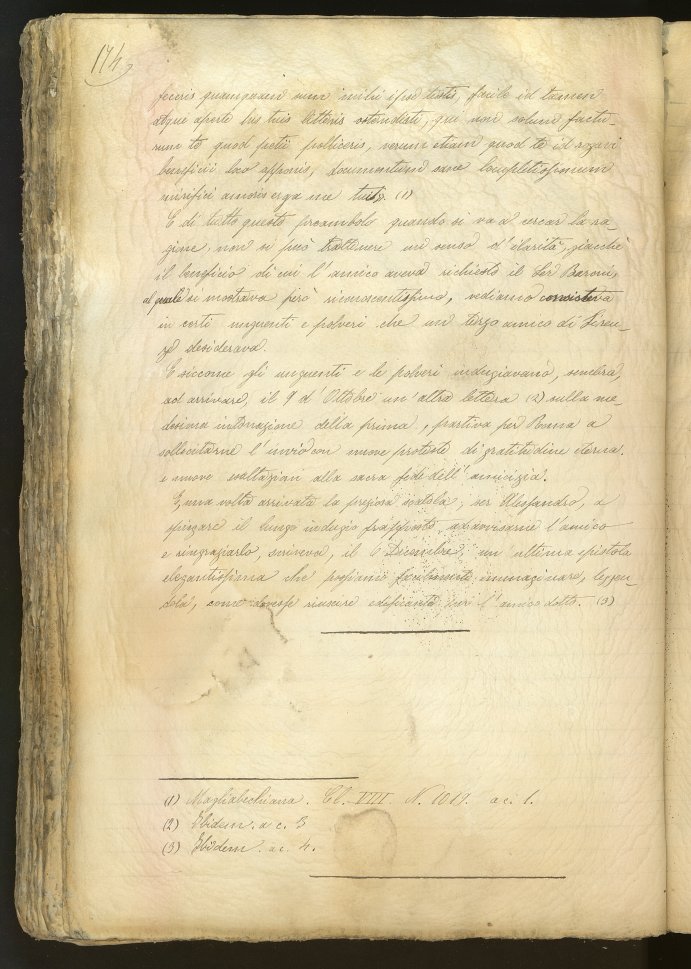 174
feceris quamquam sum mihi ipse testis, facile id tamen
atque aperte his tuis litteris ostendisti, qui non solum factu-
rum te quod petii polliceris, verum etiam quod te id rogavi
beneficii loco apponis, documentum sane locupletissimum
mirifici amoris erga me tui. (1)
E di tutto questo preambolo quando si va a cercar la ra-
gione non si può trattenere un senso d'ilarità, giacchè
il beneficio di cui l'amico aveva richiesto il Ser Baroni,
al quale si mostrava però riconoscentissimo, vediamo consisteva
in certi unguenti e polveri che un terzo amico di Firen-
ze desiderava.
E siccome gli unguenti e le polveri indugiavano, sembra,
ad arrivare, il 9 d'Ottobre un'altra lettera (2) sulla me-
desima intonazione della prima, partiva per Roma a
sollecitarne l'invio con nuove proteste di gratitudine eterna.
e nuove esaltazioni alla sacra fede dell'amicizia.
E, una volta arrivata la preziosa scatola, ser Alessandro, a
spiegare il lungo indugio frapposto ad avvisarne l'amico
e ringraziarlo, scriveva, il 6 Dicembre, un ultima epistola
elegantissima che possiamo facilmente immaginare, leggen-
dola, come dovesse riuscire edificante per l'amico dotto. (3)
(1) Magliabechiana. Cl. VIII. N. 1019. a c. 1.
(2) Ibidem. a c. 3
(3) Ibidem. a c. 4.